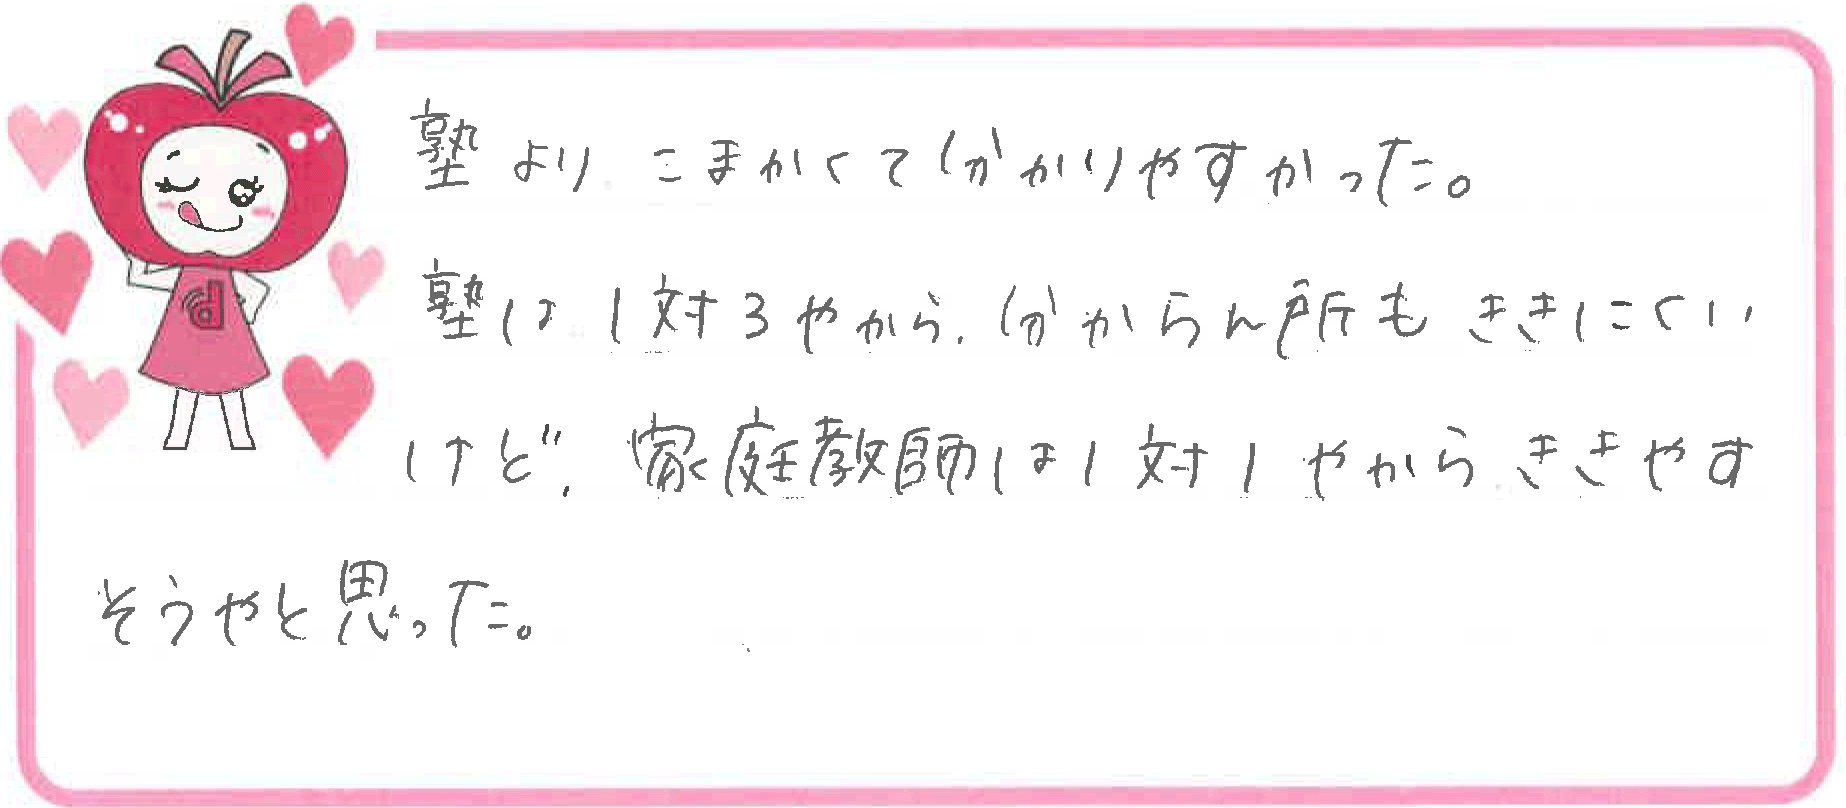 塾よりこまかくて分かりやすかった。
塾は1対3やから、分からん所もききにくい
けど、家庭教師は1対1やからききやす
そうやと思った。
d